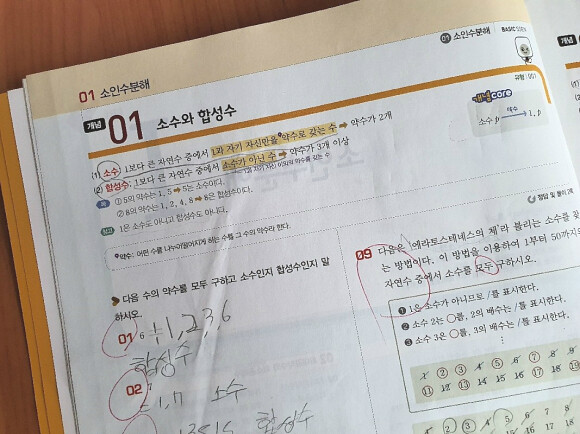 01 소인수분해
01 소인수분해
BASIC
개념 01 소수와 합성수
유형 001
개념 core
(1) 소수: 1보다 큰 자연수 중에서 1과 자기 자신만을 약수로 갖는 수 ➡ 약수가 2개
(2) 합성수: 1보다 큰 자연수 중에서 소수가 아닌 수 ➡ 약수가 3개 이상
1과 자기 자신 이외의 약수를 갖는 수
예 ① 5의 약수는 1, 5 ➡ 5는 소수이다.
② 8의 약수는 1, 2, 4, 8 ➡ 8은 합성수이다.
참고 1은 소수도 아니고 합성수도 아니다.
약수: 어떤 수를 나누어떨어지게 하는 수를 그 수의 약수라 한다.
소수 p 약수 1, p
정답 및 풀이
다음 수의 약수를 모두 구하고 소수인지 합성수인지 말하시오.
01 6 1, 2, 3, 6
합성수
02
1, 7 소수
합성수
09 다음은 '에라토스테네스의 체'라 불리는 소수를 찾
는 방법이다. 이 방법을 이용하여 1부터 50까지의
자연수 중에서 소수를 모두 구하시오.
❶ 1은 소수가 아니므로 /를 표시한다.
❷ 소수 2는 ○를, 2의 배수는 /를 표시한다.
❸ 소수 3은 ○를, 3의 배수는 /를 표시한다.
1 2 3 4 5 6 7 8 9
11 12 13 14 15 16 17 18 19
1 2 3 4 5 6 7 8